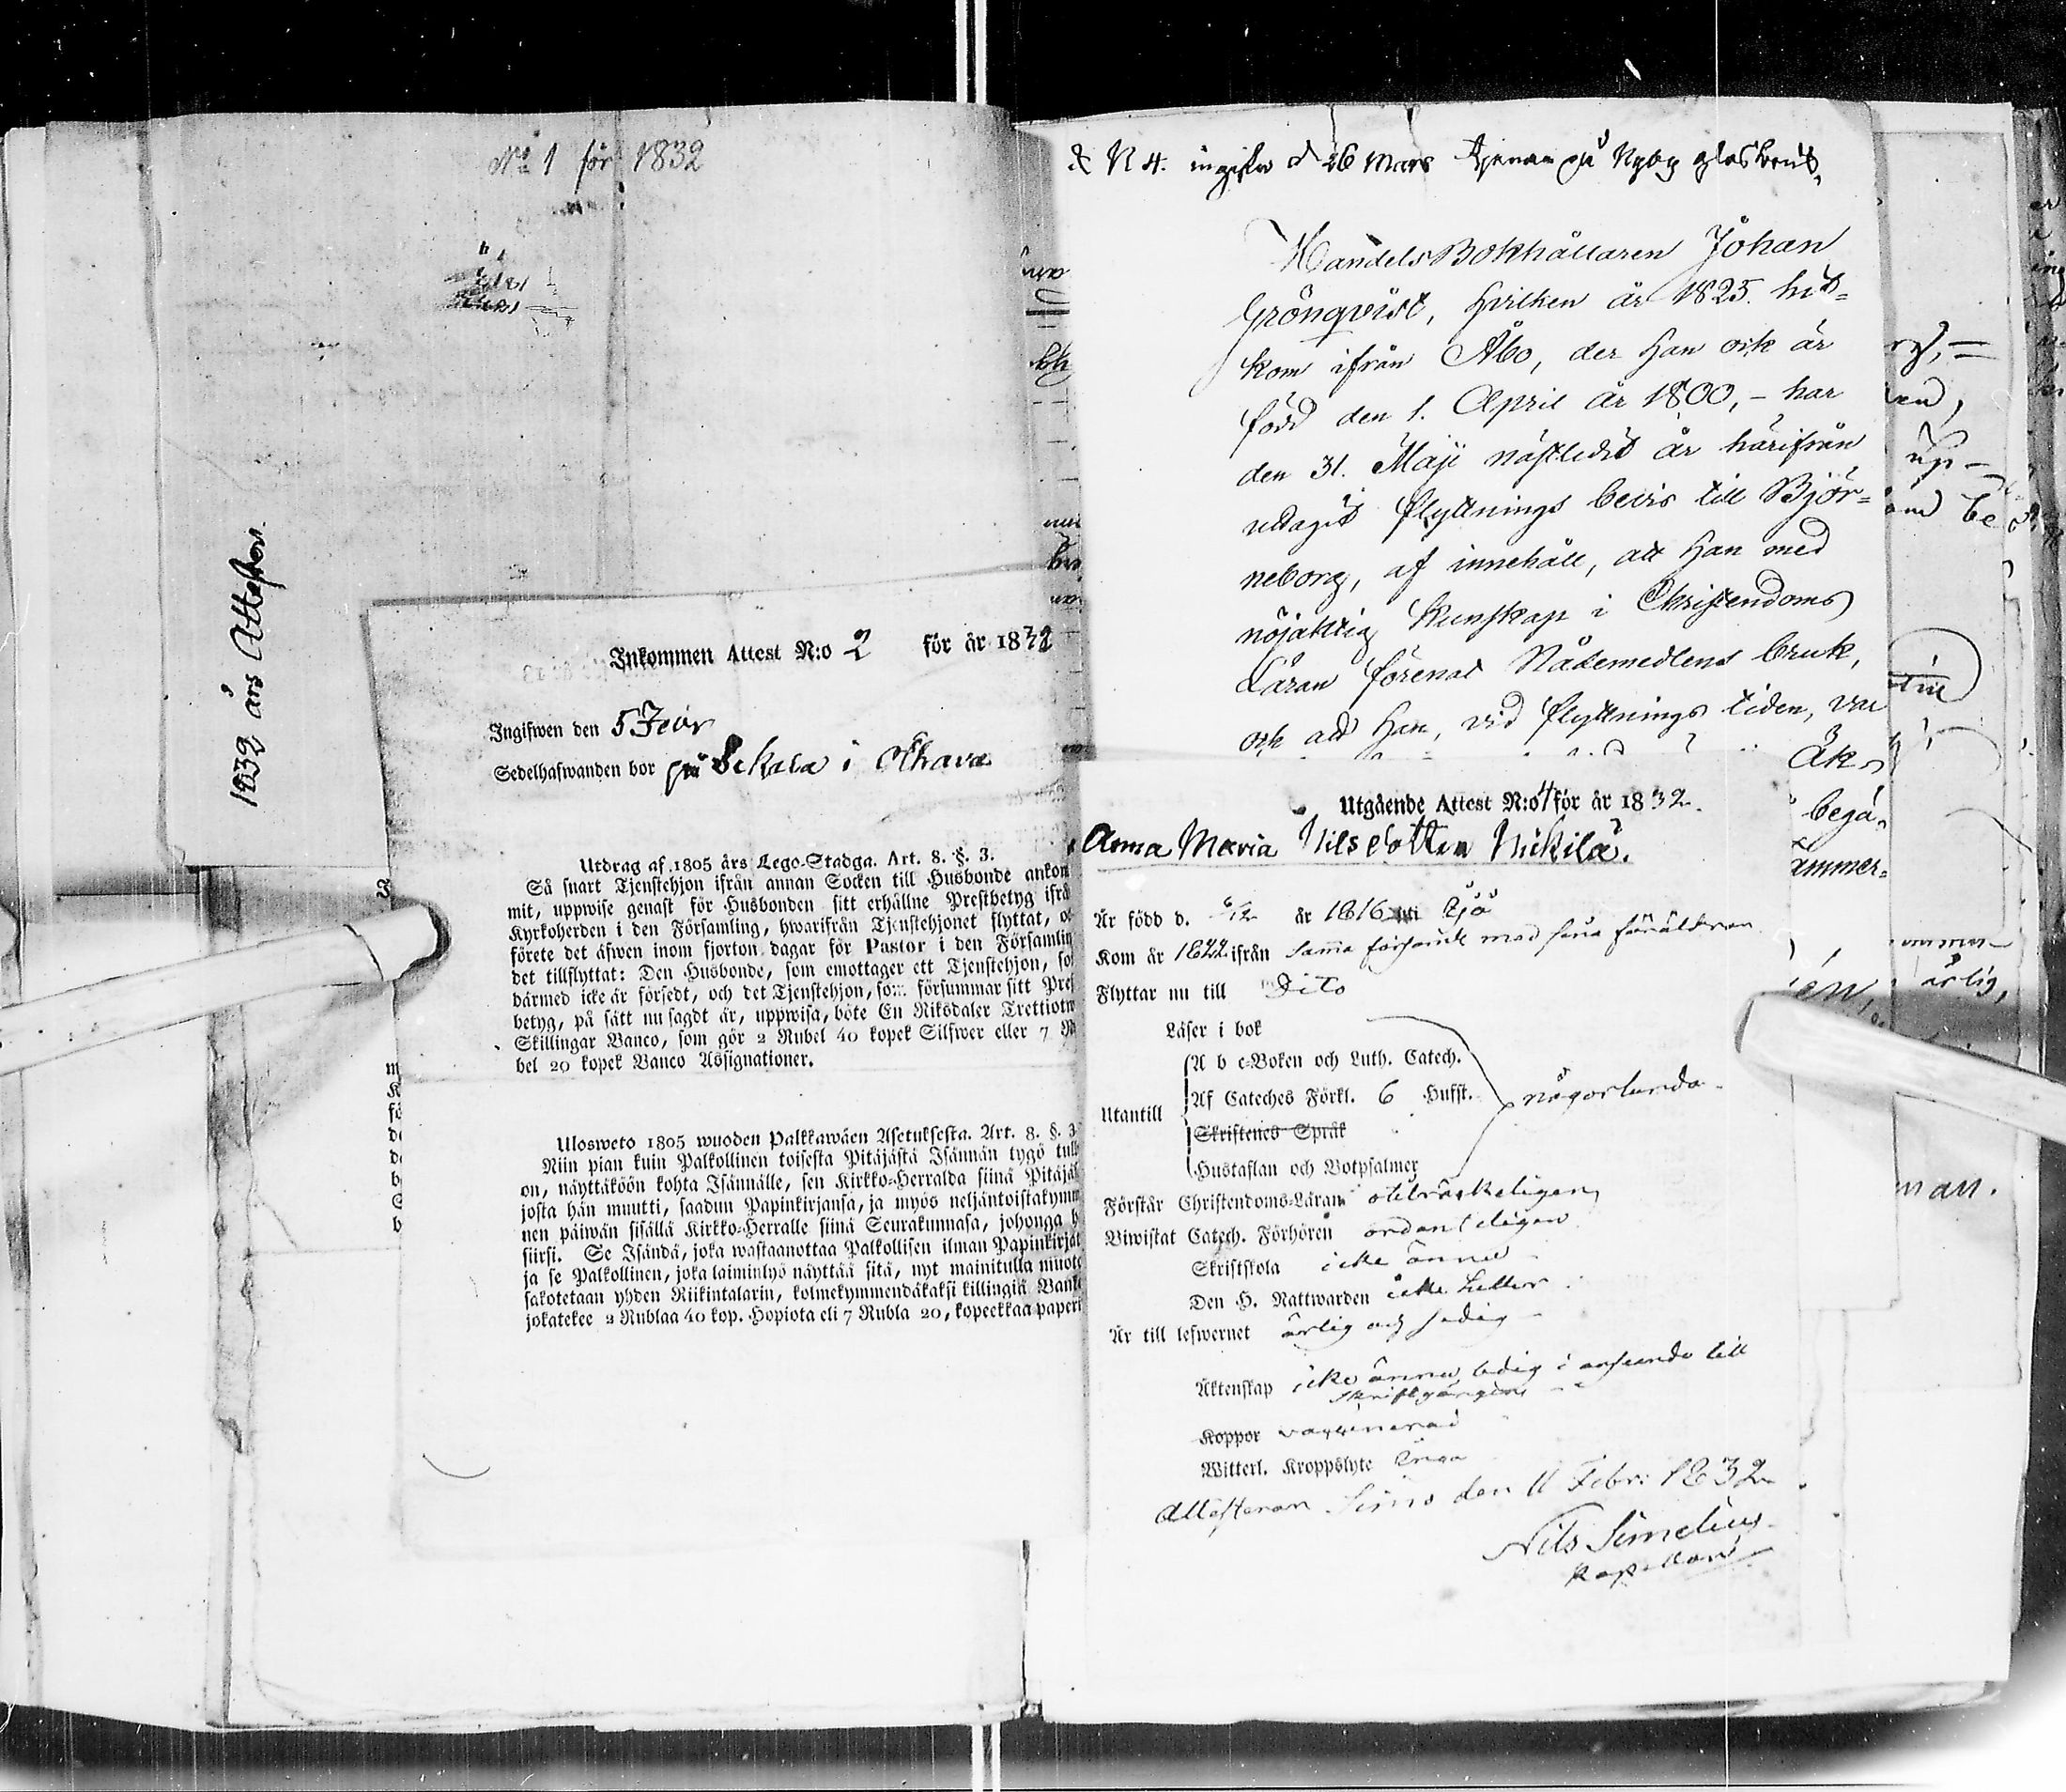 No 1 för 1832
1832 års Attester.
Inkommen Attest N:o 2 för år 1832
Ingifwen den 5
Sedelhafwanden bor på i Olhava
Utdrag af 1805 års Lego-Stadga. Art. 8. §. 3.
Så snart Tjenstehjon ifrån annan Socken till Husbonde ankom
mit, uppwise genast för Husbonden sitt erhållne Prestbetyg ifrå
Kyrkoherden i den Församling, hwarifrån Tjenstehjonet flyttat, o
förete det äfwen inom fjorton dagar för Pastor i den Församlin
det tillflyttat: Den Husbonde, som emottager ett Tjenstehjon, so
därmed icke är försedt, och det Tjenstehjon, som försummar sitt Pres
betyg, på sätt nu sagdt är, uppwisa, böte En Riksdaler Trettiotw
Skillingar Banco, som gör 2 Rubel 40 kopek Silfwer eller 7 R
bel 20 kopek Banco Assignationer.
Ulosweto 1805 wuoden Palkkawäen Asetuksesta. Art. 8. §. 3
Niin pian kuin Palkollinen toisesta Pitäjästä Isännän tygö tull
on, näyttäköön kohta Isännälle, sen Kirkko-Herralda siinä Pitäjäs
josta hän muutti, saadun Papinkirjansa, ja myös neljäntoistakymm
nen päiwän sisällä Kirkko-Herralle siinä Seurakunnasa, johonga h
siirsi. Se Isändä, joka wastaanottaa Palkollisen ilman Papinkirjat
ja se Palkollinen, joka laiminlyö näyttää sitä, nyt mainitulla muoto
sakotetaan yhden Riikintalarin, kolmekymmendäkaksi killingiä Banko
jokatekee 2 Rublaa 40 kop. Hopiota eli 7 Rubla 20, kopeekkaa paperi
N 4. ingifw d 26 Mars Tjenar på Nyby glasbruk
HandelsBokhållaren Johan
Grönqvist, hvilken år 1825. hit=
kom ifrån Åbo, der han ock är
född den 1. April år 1800, – har
den 31. Maji nästledit år härifrån
uttagit flyttnings bevis till Björ=
neborg, af innehåll, att han med
nöjaktig Kunskap i Christendoms
Läran förenat Nådemedlens bruk,
ock att han, vid flyttnings tiden, var
Utgående Attest N:o 4 för år 1832.
Anna Maria Nilsdotter Nickilä.
Är född d. 6/12 år 1816 uti Ijo
Kom år 1822 ifrån samma församl med sina föräldrar
Flyttar nu till Dito
Läser i bok
A b c-Boken och Luth. Catech.
Utantill
Af Cateches Förkl. 6 Hufst. någorlunda
Skriftenes Språk
Hustaflan och Botpsalmer
Förstår Christendoms-Läran otilräckeligen
Biwistat Catech. Förhören ordenteligen
Skriftskola icke ännu
Den H. Nattwarden icke heller
Är till lefwernet ärlig och sedig
Äktenskap icke ännu ledig i anseende till
skriftgången
Koppor vaccinerad
Witterl. Kroppslyte Inga
Attesterar Simo den 11 Febr: 1832
Nils Simelius
Kapellan